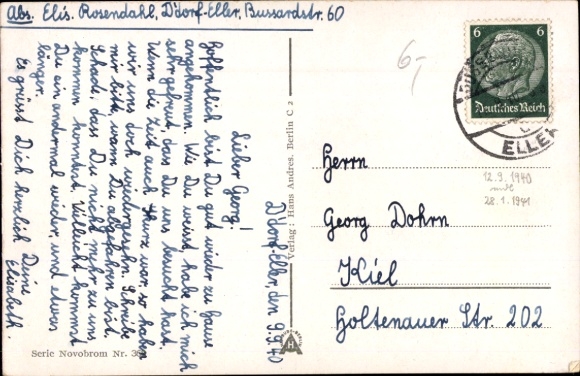 Abs. Elis. Rosendahl, D'dorf-Eller, Bussardstr. 60
D'dorf-Eller, den 9.9.40
Lieber Georg!
Hoffentlich bist Du gut wieder zu Hause
angekommen. Wie Du weißt habe ich mich
sehr gefreut, daß Du uns besucht hast.
Wenn die Zeit auch kurz war, so haben
wir uns doch wiedergesehn. Schreibe
mir bitte, wann Du abgefahren bist.
Schade, daß Du nicht mehr zu uns
kommen konntest. Vielleicht kommst
Du ein andermal wieder, und etwas
länger.
Es grüßt Dich herzlich Deine
Elisabeth.
Verlag: Hans Andres, Berlin C 2
Serie Novobrom Nr.
6,-
6 6
Deutsches Reich
ELLER
12.9.1940
28.1.1941
Herrn
Georg Dohrn
Kiel
Holtenauer Str. 202